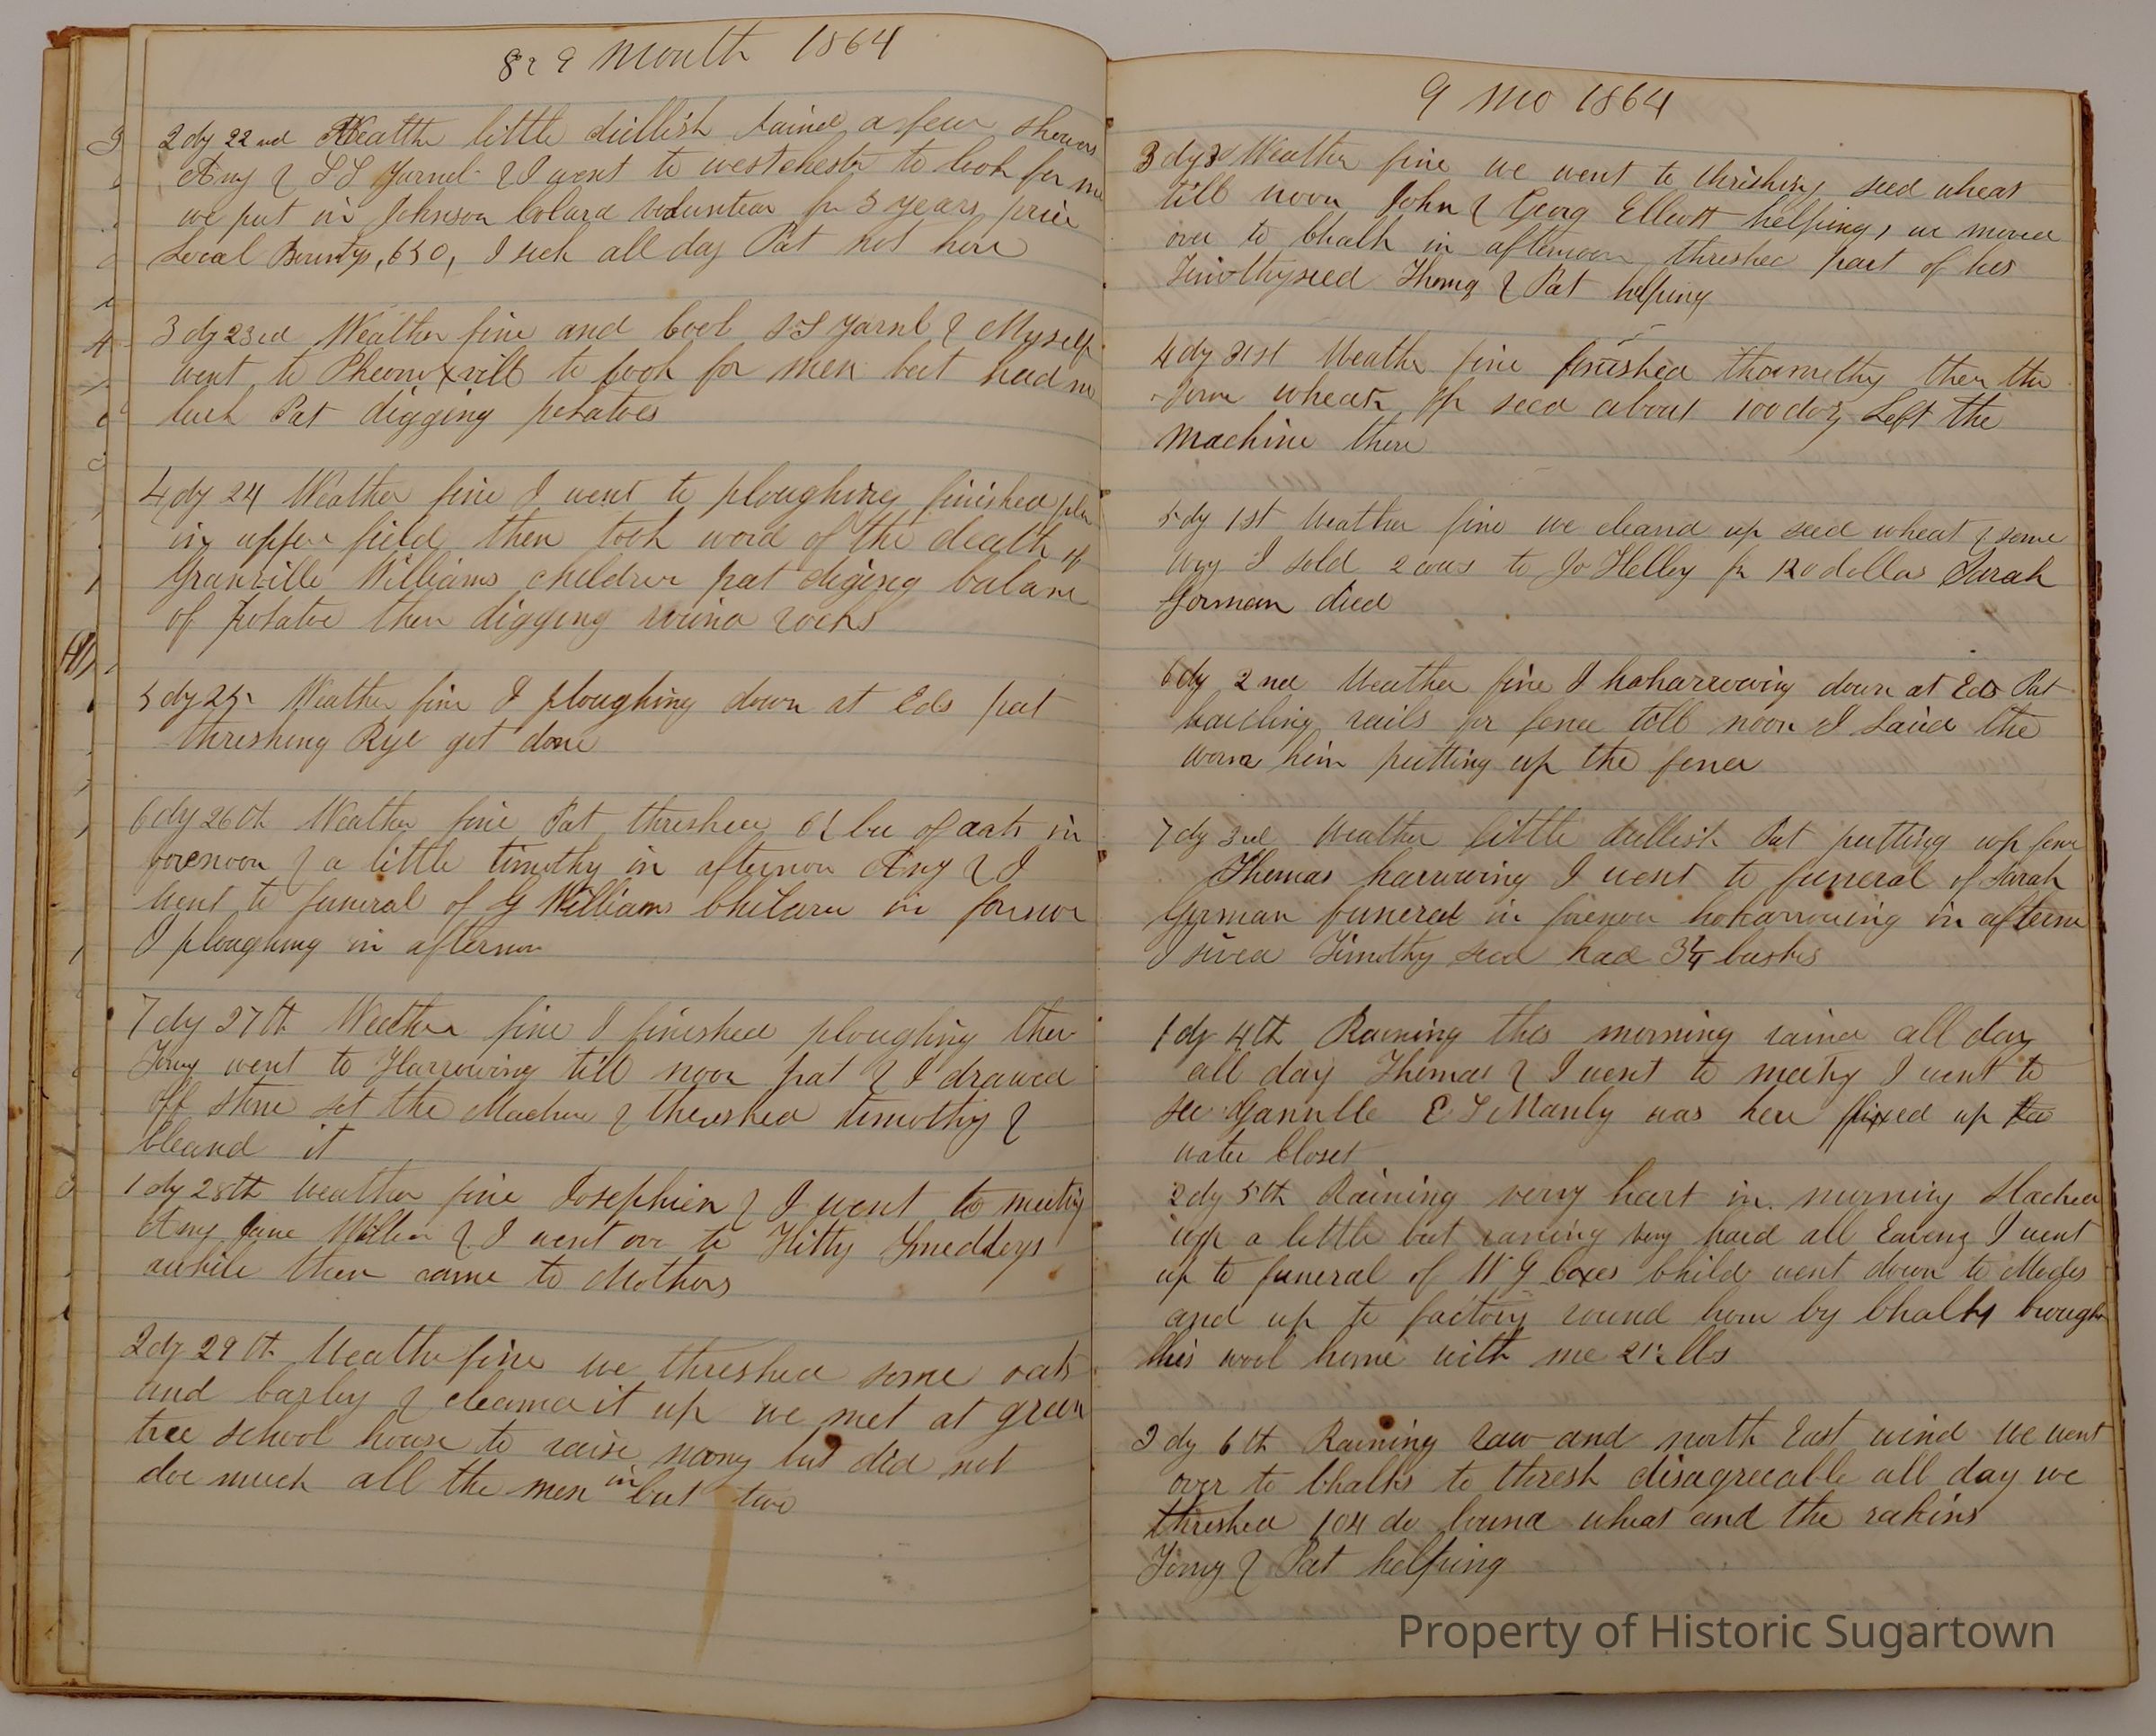 8 & 9 Month 1864
2 dy 22nd Weathe little dullish rained a few showers
Amy & S S Yarnel & I went to westchester to look for me
we put in Johnson Colard volunteer for 3 years price
Local Bounty, 650, I sick all day Pat not here
3 dy 23rd Weather fine and Cool S S Yarnl & Myself
went to Pheonixvill to look for men but had no
luck Pat digging potatoes
4 dy 24 Weather fine I went to ploughing finished plo
ing upper field then took word of the death of
Granville Williams children pat diging balanc
of potatoe then digging round rocks
5 dy 25 Weather fine I ploughing down at Eds pat
threshing Rye got done
6 dy 26th Weather fine Pat threshed 61 bu of oats in
forenoon & a little timothy in afternoon Amy & I
went to funeral of G Williams Children in forenoo
I ploughing in afternoon
7 dy 27th Weather fine I finished ploughing then
Tomy went to Harrowing till noon pat & I drawed
off stone set the Machine & threshed timothy &
Cleand it
1 dy 28th weather fine Josephien & I went to meeting
Amy Jane & I went over to Kitty Smedleys
awhile then came to Mothers
2 dy 29th Weather fine we threshed some oats
and barley & cleaned it up we met at green
tree school house to raise mony but did not
doe much all the men in but two
9 Mo 1864
3 dy Weather fine we went to threshing seed wheat
till noon John & Georg Elliott helping, we moved
over to Chalk in afternoon threshed part of his
Timothyseed Thomy & Pat helping
4 dy 31st Weathe fine finished thoimethy then the
wheat for seed about 100 doz Left the
Machine there
5 dy 1st Weather fine we cleand up seed wheat & some
I sold 2 cows to Jo Kelley for 120 dollas Sarah
Gorman died
6 dy 2nd Weather fine I hoharrowing down at Eds Pat
hauling rails for fence till noon I Laied the
worm him putting up the fence
7 dy 3rd Weather little dullish Pat putting up fenc
Thomas harrowing I went to funeral of Sarah
Gorman funeral in forenoon hoharrowing in afterno
I sived Timothy seed had bushs
1 dy 4th Raining this morning rained all day
all day Thomas & I went to meeting I went to
see E S Manly was here fixed up the
water Closet
2 dy 5th Raining very hart in morning Slacked
up a little but raning very hard all I went
up to funeral of W G Coxes Child went down to Modes
and up to factory round home by Chalks brough
his wool home with me lbs
3 dy 6th Raining raw and north East wind We went
over to Chalks to thresh disagreeable all day we
threshed 104 do bound wheat and the rakins
Tomy & Pat helping
Property of Historic Sugartown